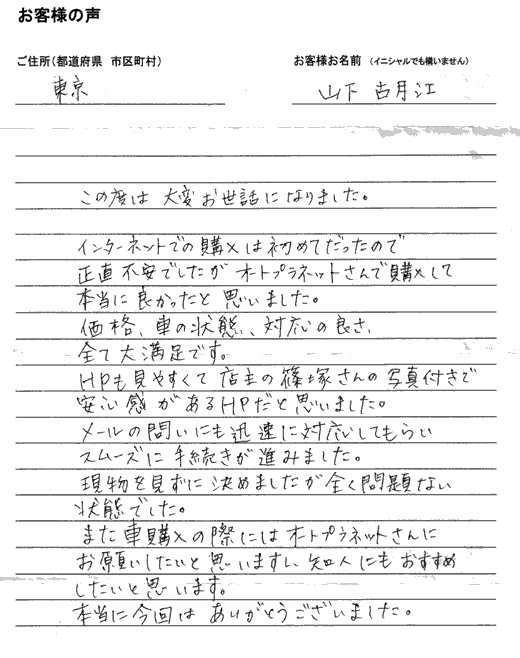 お客様の声
ご住所(都道府県 市区町村)
お客様お名前 (イニシャルでも構いません)
東京
山下 古月江
この度は 大変お世話になりました。
インターネットでの購入は初めてだったので
正直不安でしたがオートプラネットさんで購入して
本当に良かったと思いました。
価格、車の状態、対応の良さ、
全て大満足です。
HPも見やすくて店主の篠塚さんの写真付きで
安心感があるHPだと思いました。
メールの問いにも迅速に対応してもらい
スムーズに手続きが進みました。
現物を見ずに決めましたが全く問題ない
状態でした。
また車購入の際にはオートプラネットさんに
お願いしたいと思いますし、知人にもおすすめ
したいと思います。
本当に今回はありがとうございました。